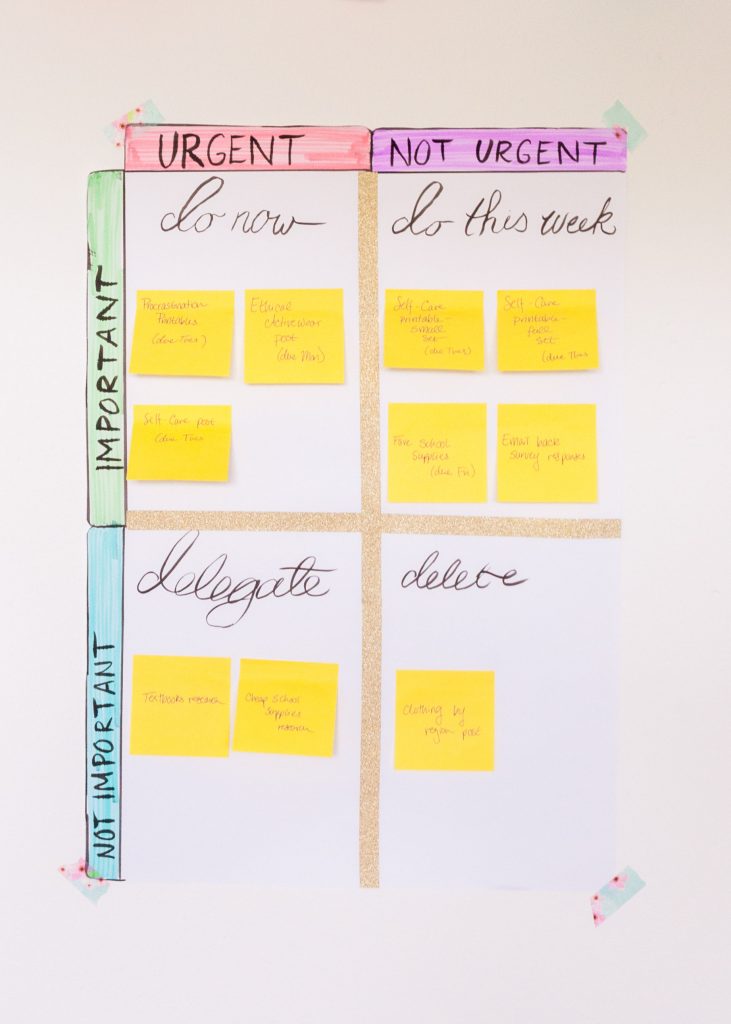 URGENT
NOT URGENT
IMPORTANT
do now
do this week
Procrastination
Printables
(due Tues)
Ethical
Activewear
post
(due Mon)
Self-Care post
(due Tues
Self-Care
printable-
small
set
(due Tues)
Self-Care
printable-
full
set
(due Tues
School
Supplies
(due Fri)
Email back
survey responses
NOT IMPORTANT
delegate
delete
Textbooks research
Cheap School
Supplies
research
Clothing by
region post